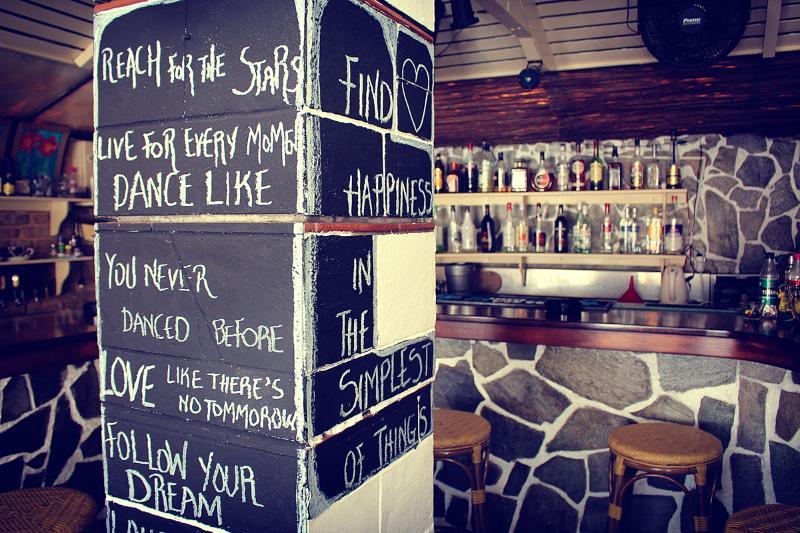 REACH FOR THE STARS
LIVE FOR EVERY MOME
DANCE LIKE
YOU NEVER
DANCED BEFORE
LOVE LIKE THERE'S
NO TOMMOROW
FOLLOW YOUR
DREAM
FIND
HAPPINESS
IN
THE
SIMPLEST
OF THINGS